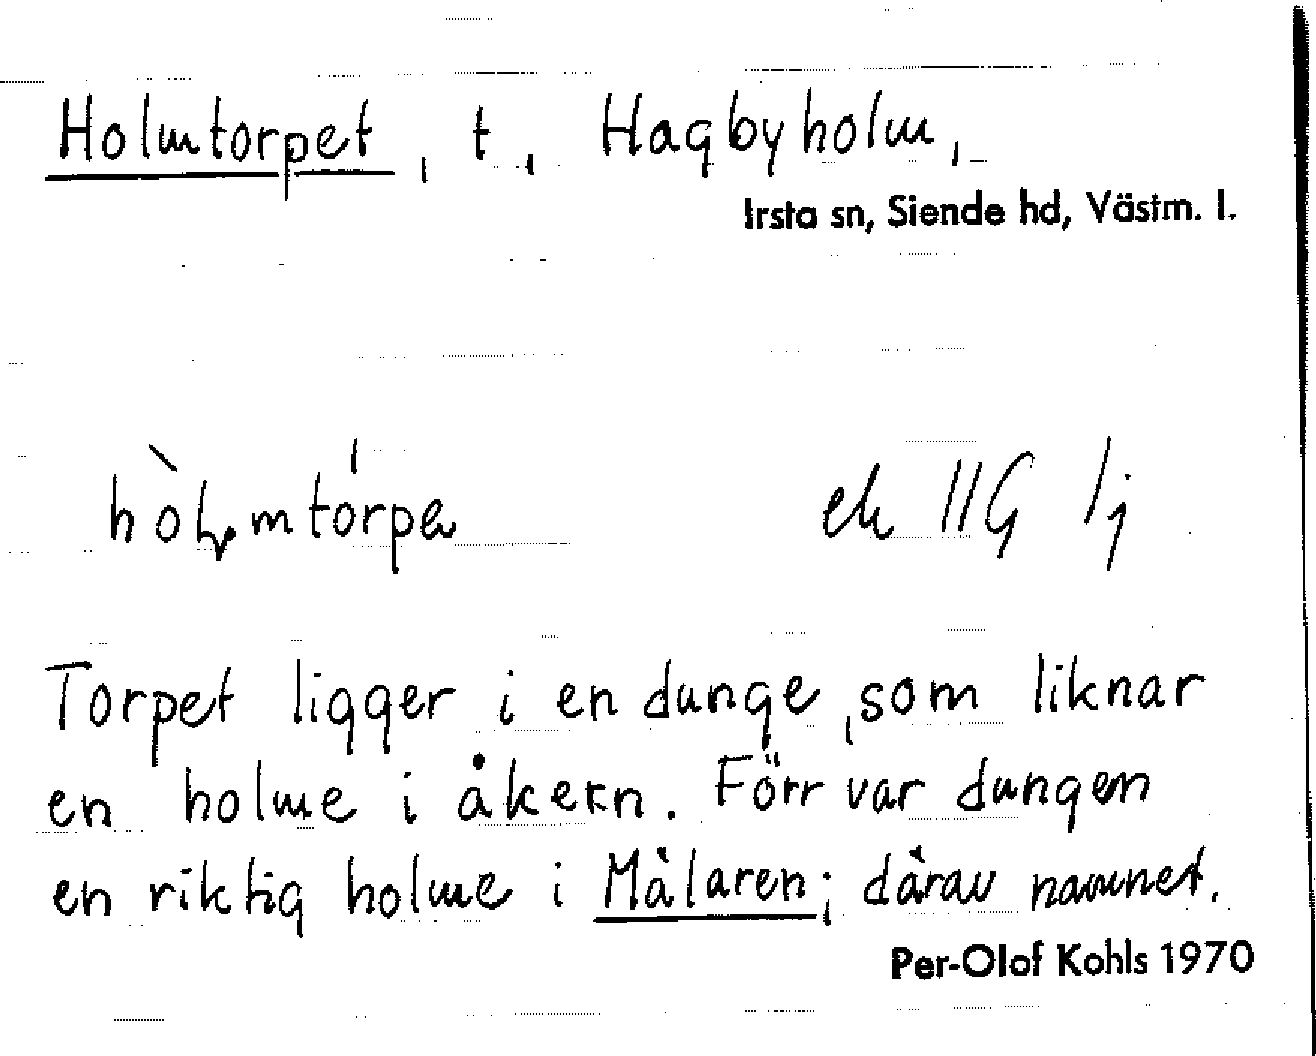 Holmtorpet, t., Hagbyholm,
Irsta sn, Siende hd, Västm. l.
ek 11G 1j
Torpet ligger i en dunge, som liknar
en holme i åkern. Förr var dungen
en riktig holme i Mälaren; därav namnet.
Per-Olof Kohls 1970